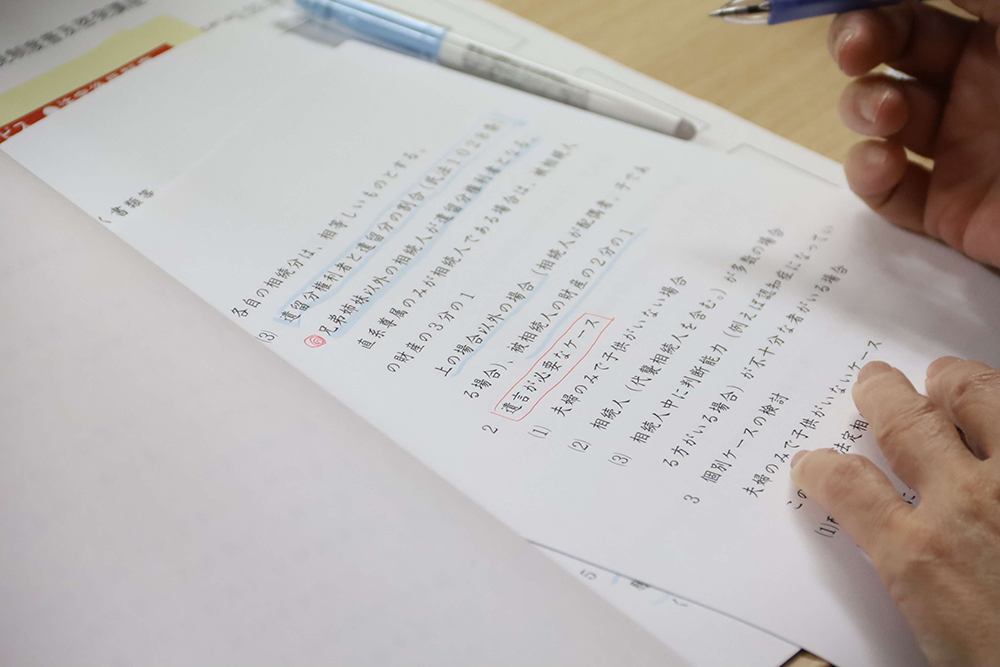 ビス
く書類等
各自の相続分は、相等しいものとする。
(3) 遺留分権利者と遺留分の割合(民法1028条
兄弟姉妹以外の相続人が遺留分権利者となる。
直系尊属のみが相続人である場合は、被相続人
の財産の3分の1
上の場合以外の場合(相続人が配偶者、子であ
る場合)、被相続人の財産の2分の1
2 遺言が必要なケース
(1) 夫婦のみで子供がいない場合
(2) 相続人(代襲相続人を含む。)が多数の場合
(3) 相続人中に判断能力(例えば認知症になってい
る方がいる場合)が不十分な者がいる場合
3 個別ケースの検討
夫婦のみで子供がいないケース
この 法定相
(1)
5